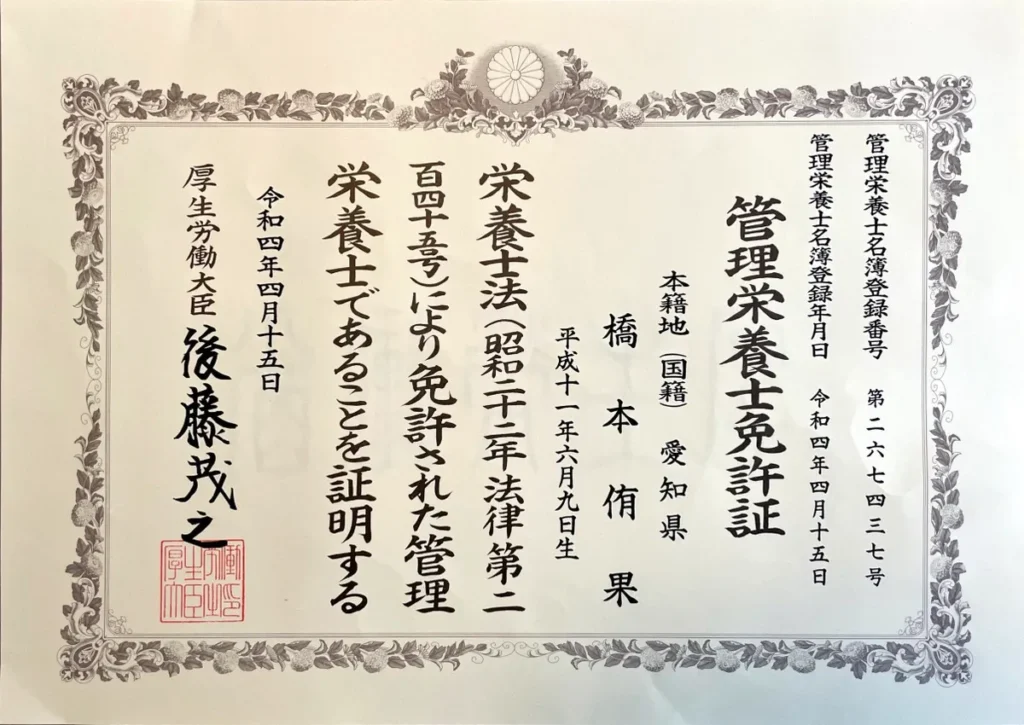 管理栄養士名簿登録番号 第二六七四三七号
管理栄養士名簿登録年月日 令和四年四月十五日
管理栄養士免許証
本籍地（国籍） 愛知県
橋本侑果
平成十一年六月九日生
栄養士法（昭和二十二年法律第二
百四十五号）により免許された管理
栄養士であることを証明する
令和四年四月十五日
厚生労働大臣 後藤茂之